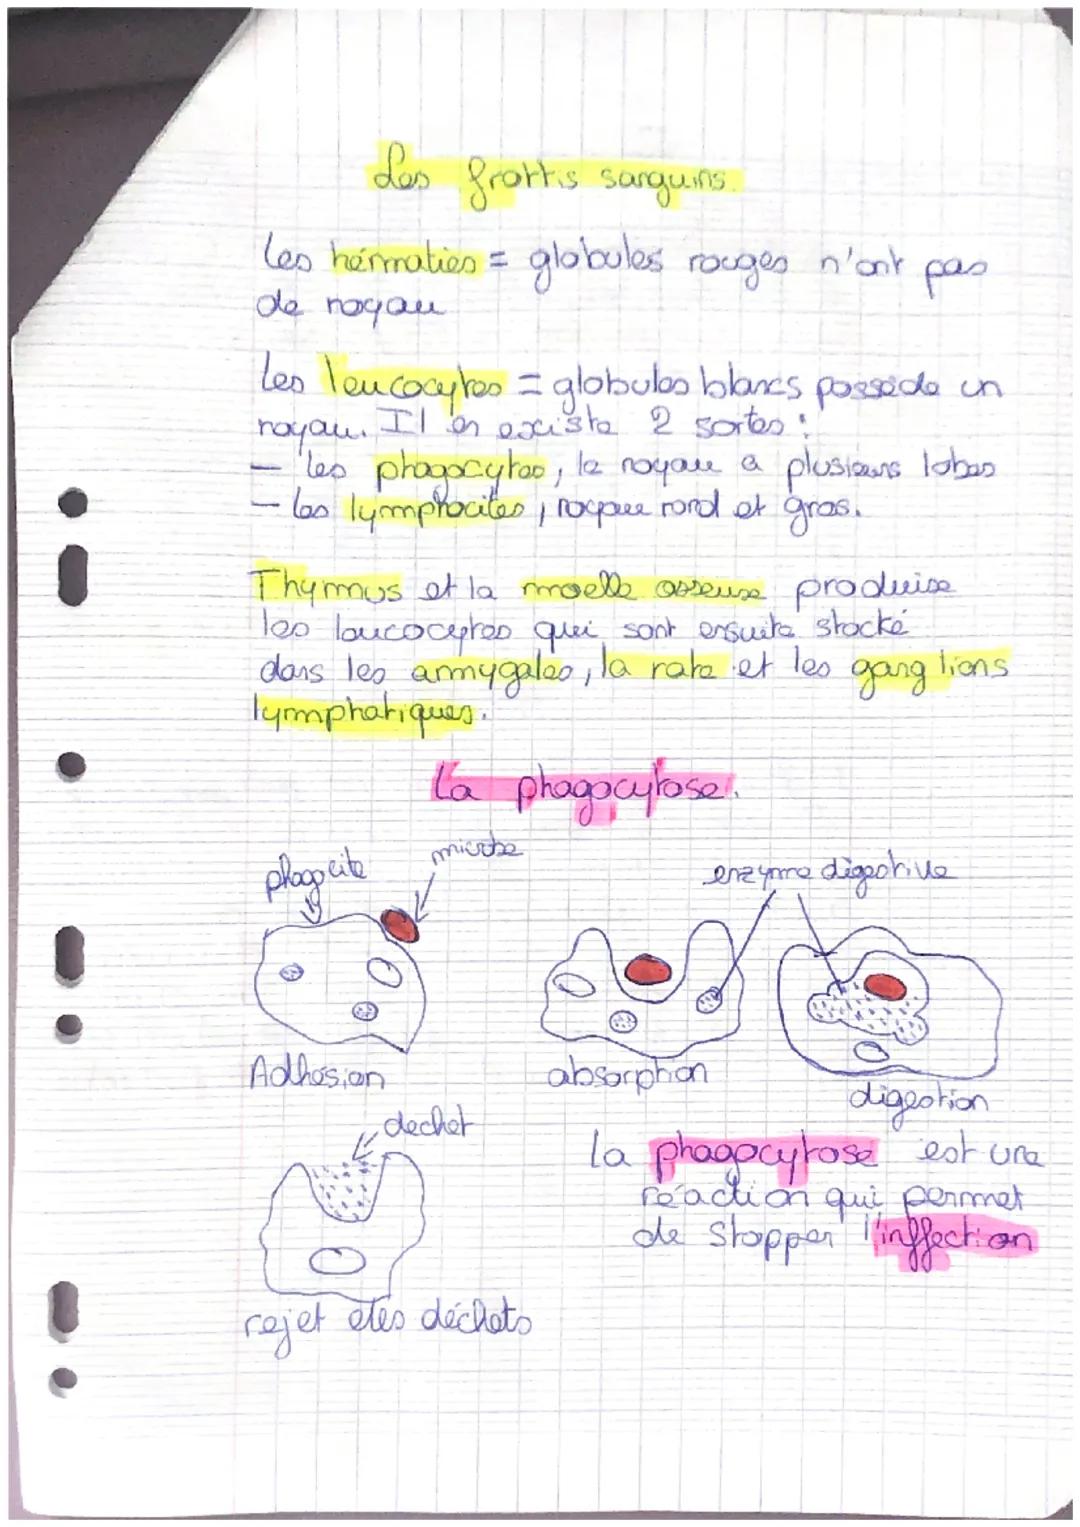 Les frottis sanguins.
Les hérmaties = globules rouges n'ont pas
de noyau
Les leucocytes = globules blancs possède un
noyau. Il en existe 2 sortes :
- les phagocytes, le noyau a plusieurs lobes
- les lymphocites, noyau rond et gros.
Thymus et la moelle osseuse produise
les leucocytes qui sont ensuite stocké
dans les amygales, la rate et les ganglions
lymphatiques.
La phagocytose.
phagocite
microbe
enzyme digestive
Adhésion
absorption
digestion
dechet
La phagocytose est une
réaction qui permet
de stopper l'inffection
rejet des déchets